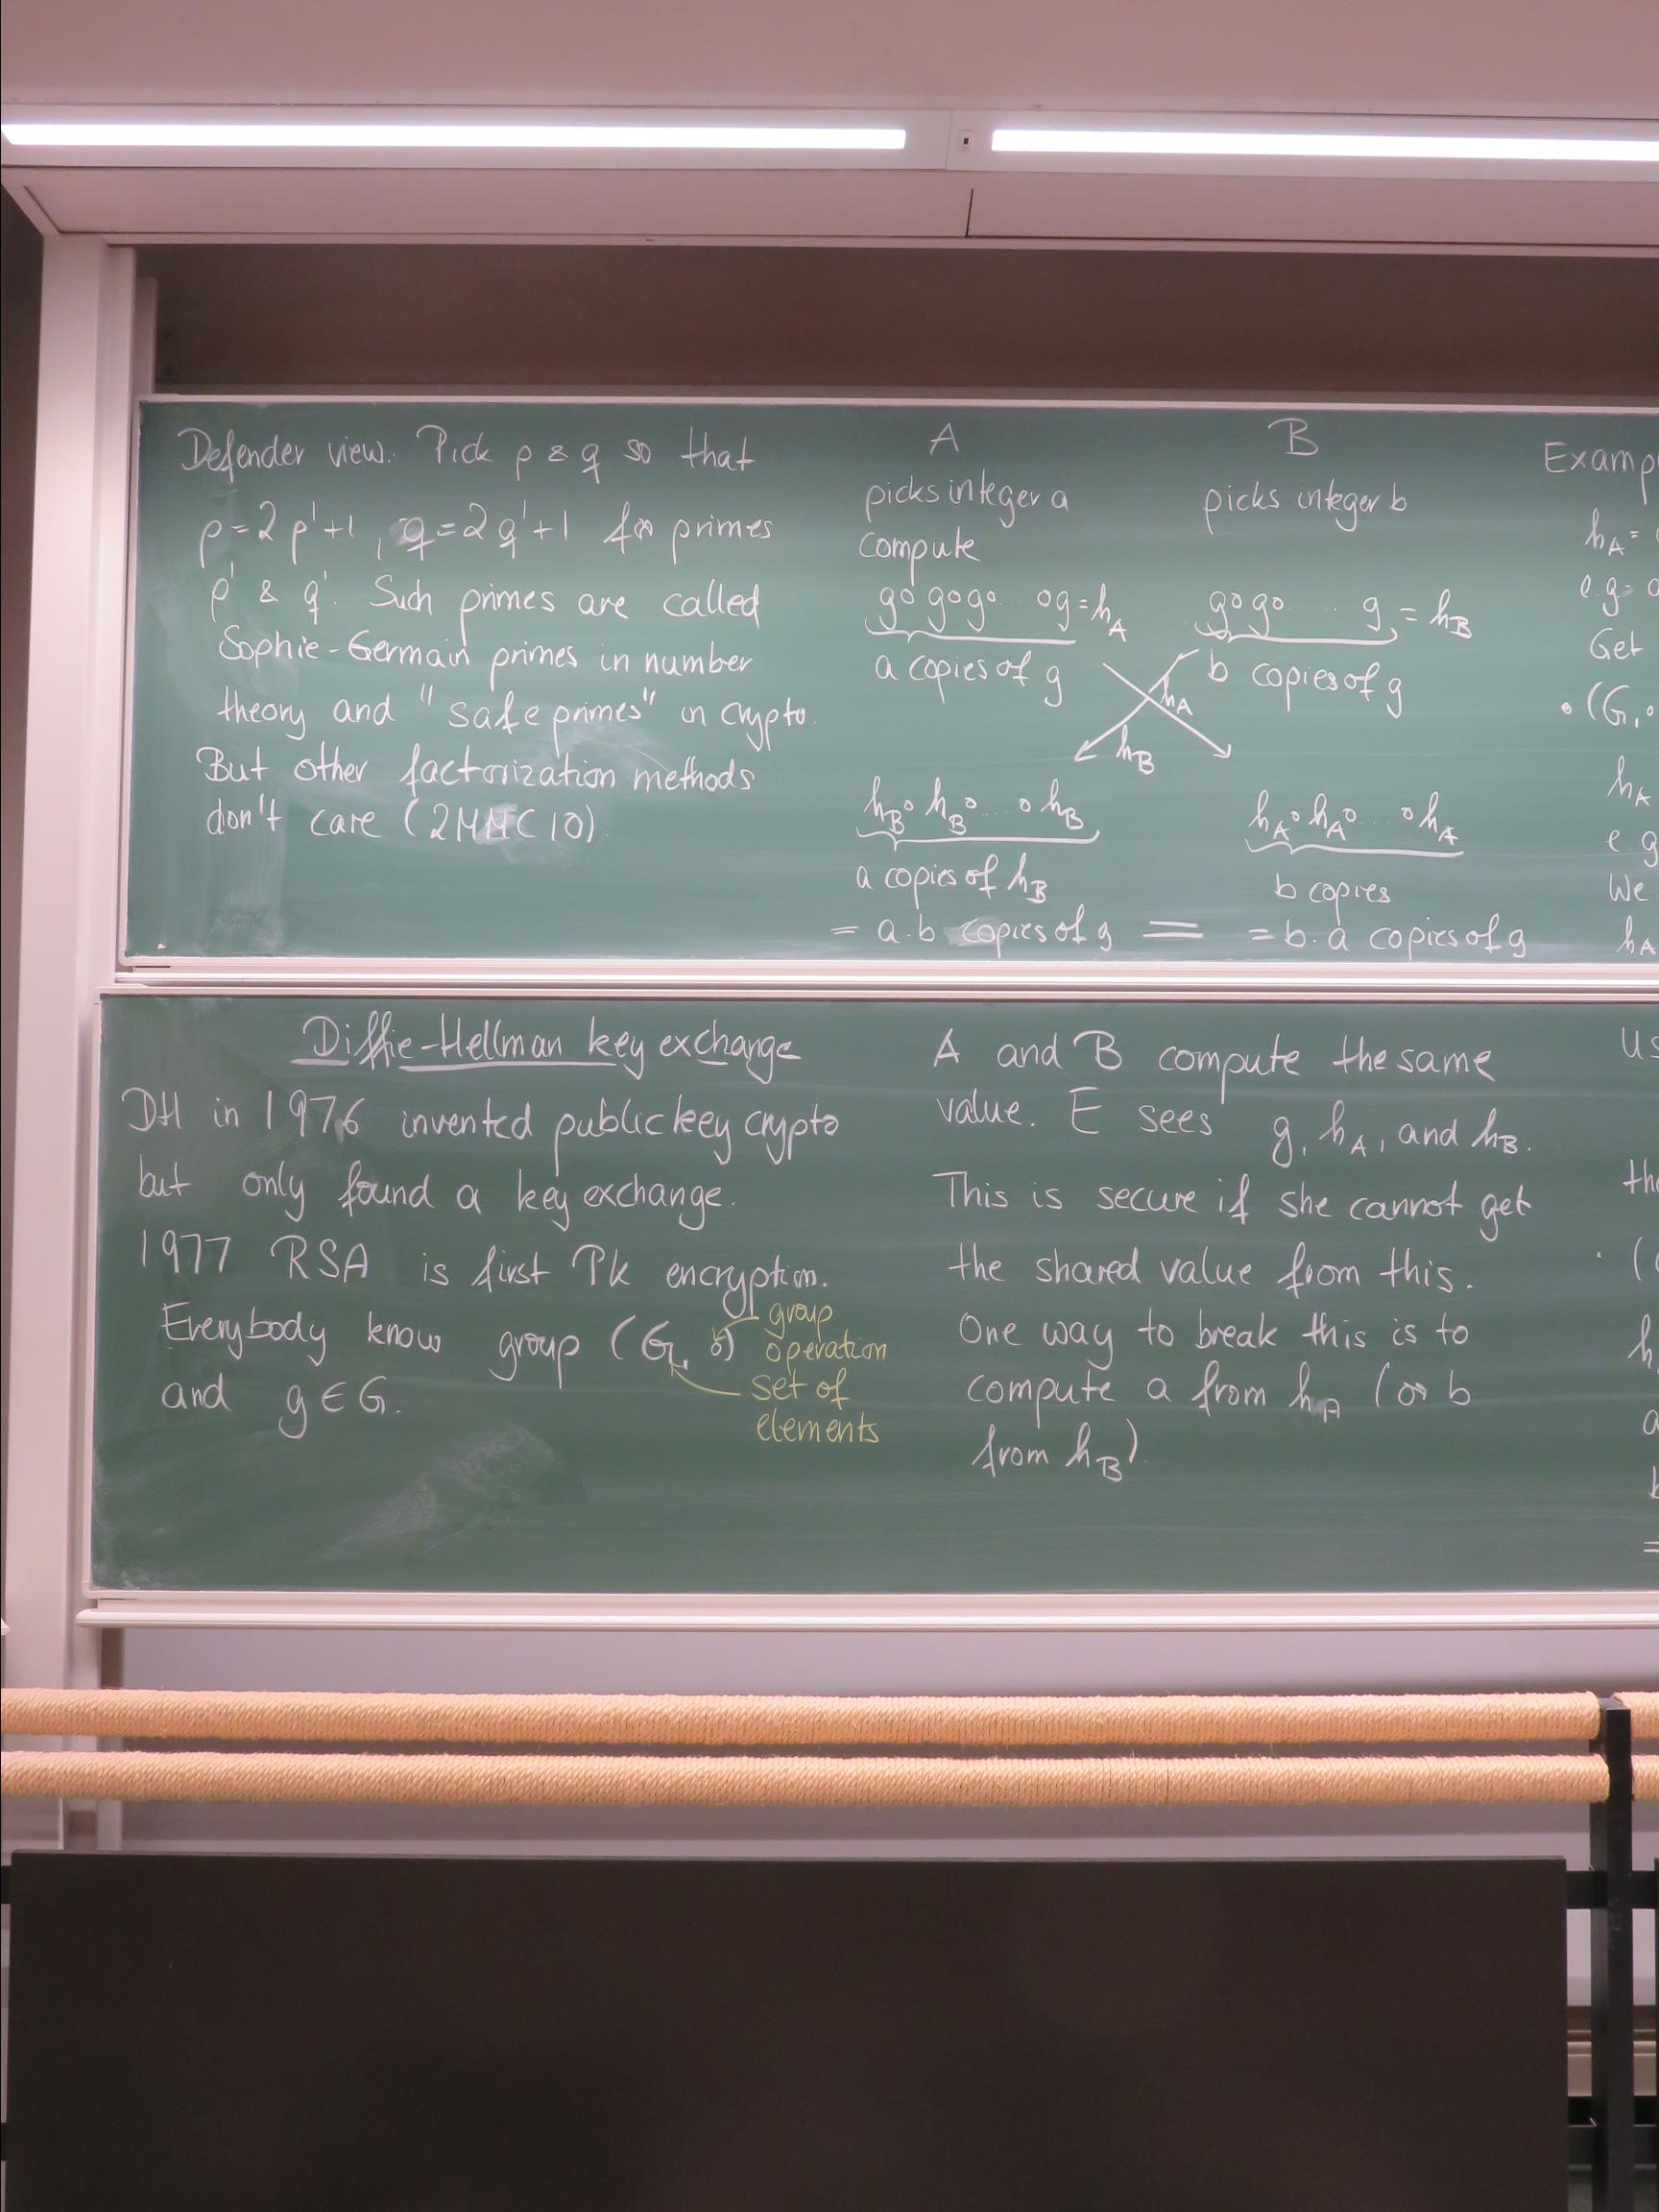 Defender view. Pick p & q so that
p=2p'+1, q=2q'+1 for primes
p' & q'. Such primes are called
Sophie-Germain primes in number
theory and "safe primes" in crypto.
But other factorization methods
don't care (2MMC10).
A
picks integer a
compute
g∘g∘g∘...∘g=h_A
a copies of g
B
picks integer b
g∘g∘.....g=h_B
b copies of g
h_A
h_B
h_B∘h_B∘...∘h_B
a copies of h_B
= a.b copies of g
=
h_A∘h_A∘...∘h_A
b copies
= b.a copies of g
h_A=
e.g.
Get
•(G,∘
h_A
e g
We
h_A
Diffie-Hellman key exchange
DH in 1976 invented public key crypto
but only found a key exchange.
1977 RSA is first Pk encryption.
Everybody know group (G, ∘)
and g∈G.
group
operation
set of
elements
A and B compute the same
value. E sees g, h_A, and h_B.
This is secure if she cannot get
the shared value from this.
One way to break this is to
compute a from h_A (or b
from h_B)